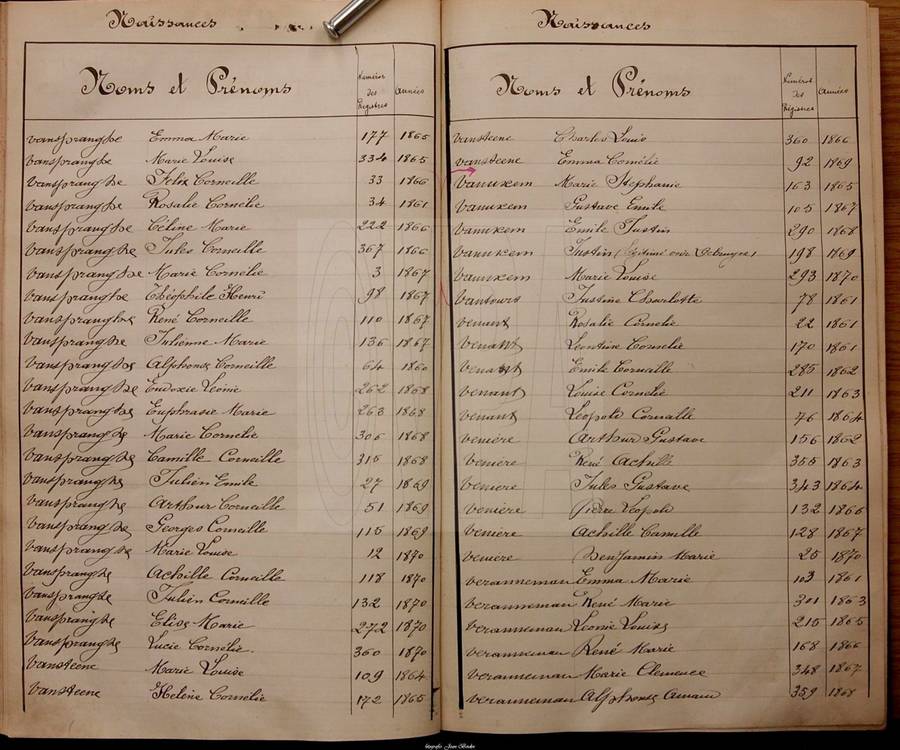 Naissances
Noms et Prénoms Numéros des Registres Années
Vanspranghe Emma Marie 177 1865
Vanspranghe Marie Louise 334 1865
Vanspranghe Félix Corneille 33 1866
Vanspranghe Rosalie Cornélie 34 1861
Vanspranghe Céline Marie 222 1866
Vanspranghe Jules Corneille 367 1866
Vanspranghe Marie Cornélie 3 1867
Vanspranghe Théophile Henri 98 1867
Vanspranghe René Corneille 110 1867
Vanspranghe Julienne Marie 136 1867
Vanspranghe Alphonse Corneille 64 1860
Vanspranghe Eudoxie Léonie 262 1868
Vanspranghe Euphrasie Marie 263 1868
Vanspranghe Marie Cornélie 306 1868
Vanspranghe Camille Corneille 315 1868
Vanspranghe Julien Emile 27 1869
Vanspranghe Arthur Corneille 51 1869
Vanspranghe Georges Corneille 115 1869
Vanspranghe Marie Louise 12 1870
Vanspranghe Achille Corneille 118 1870
Vanspranghe Julien Corneille 132 1870
Vanspranghe Elise Marie 272 1870
Vanspranghe Lucie Cornélie 360 1870
Vansteene Marie Louise 109 1864
Vansteene Hélène Cornélie 172 1865
Naissances
Noms et Prénoms Numéros des Régistres Années
Vansteene Charles Louis 360 1866
Vansteene Emma Cornélie 92 1869
Vanuxem Marie Stephanie 163 1865
Vanuxem Gustave Emile 105 1867
Vanuxem Emile Justin 290 1868
Vanuxem Justin 198 1869
Vanuxem Marie Louise 293 1870
Vantours Justine Charlotte 78 1861
Venant Rosalie Cornélie 22 1861
Venant Léontine Cornélie 170 1861
Venant Emile Corneille 285 1862
Venant Louise Cornélie 211 1863
Venant Léopold Corneille 76 1864
Venière Arthur Gustave 156 1862
Venière René Achille 355 1863
Venière Jules Gustave 343 1864
Venière Léopold 132 1866
Venière Achille Camille 128 1867
Venière Benjamin Marie 25 1870
Veranneman Emma Marie 103 1861
Veranneman René Marie 301 1863
Veranneman Léonie Louise 215 1865
Veranneman René Marie 168 1866
Veranneman Marie Clemence 348 1867
Veranneman Alphonse Amand 359 1868